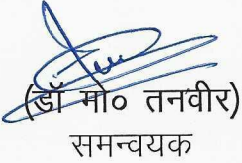 (डॉ मो० तनवीर)
समन्वयक